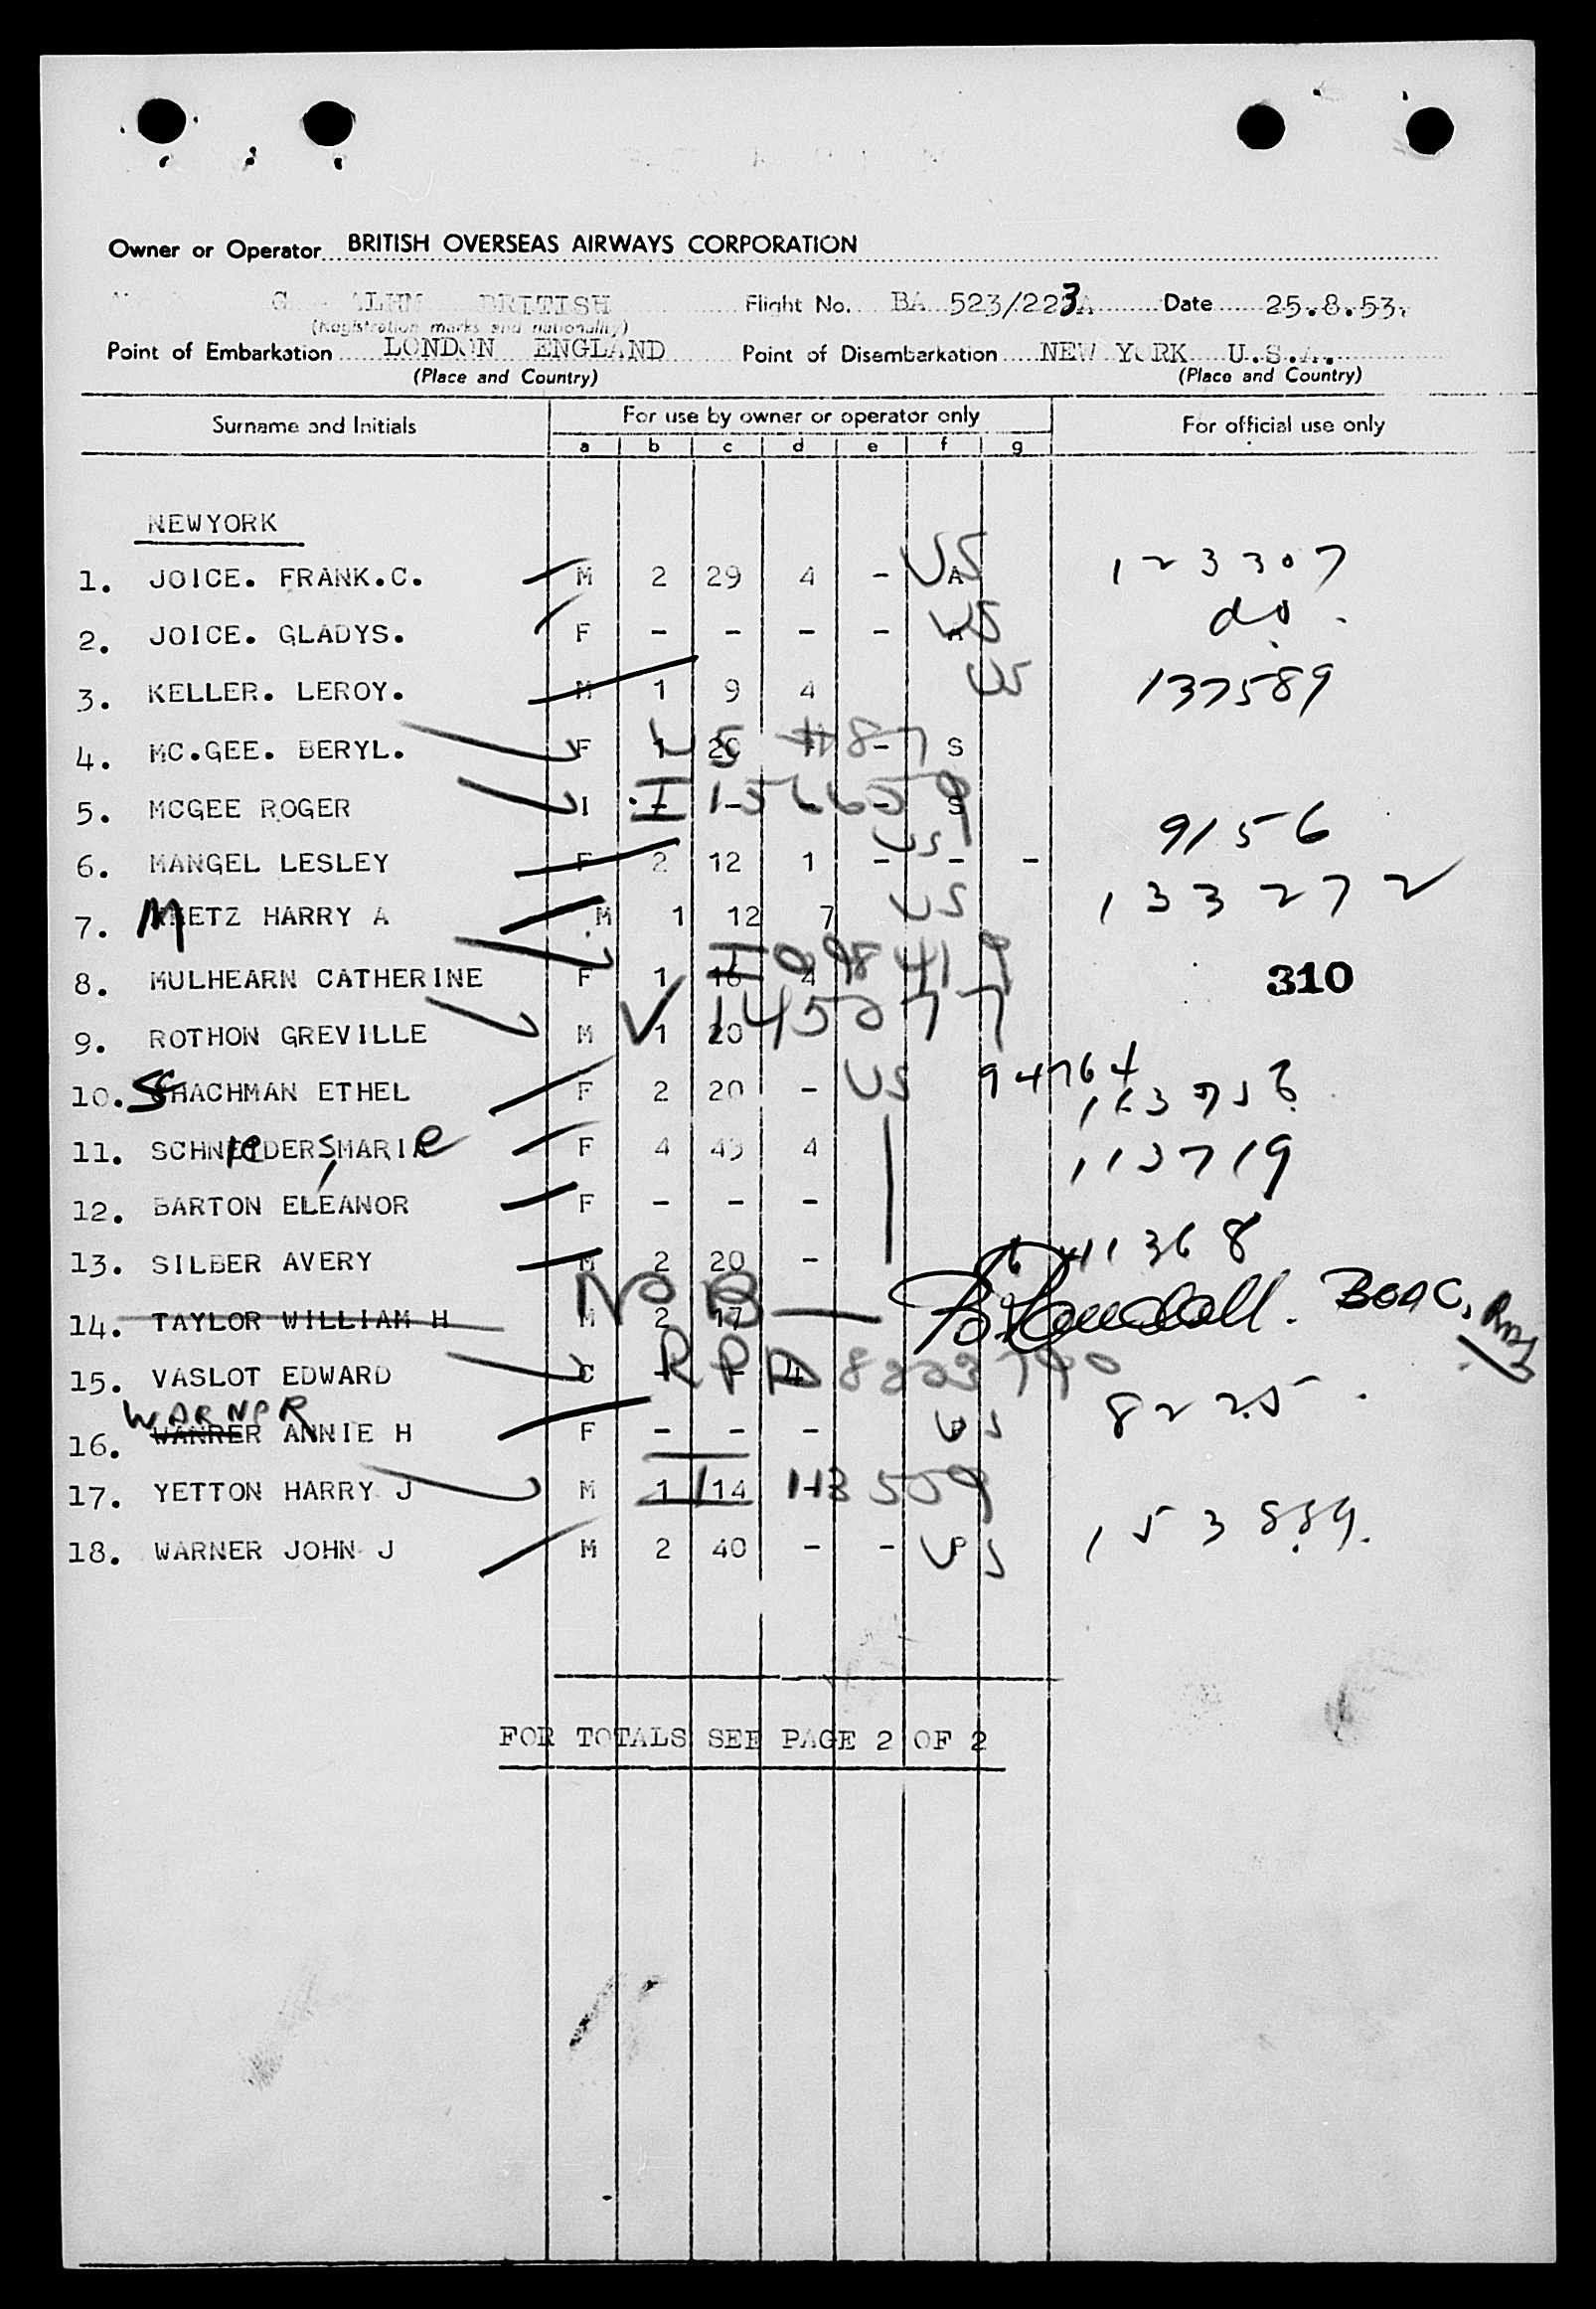 Owner or Operator BRITISH OVERSEAS AIRWAYS CORPORATION
G ALHM BRITISH Flight No. BA 523/223A Date 25.8.53.
(Registration marks and nationality)
Point of Embarkation LONDON ENGLAND Point of Disembarkation NEW YORK U.S.A.
(Place and Country) (Place and Country)
Surname and Initials For use by owner or operator only For official use only
a b c d e f g
NEWYORK
1. JOICE. FRANK.C. M 2 29 4 - A US 123307
2. JOICE. GLADYS. F - - - - A US do.
3. KELLER. LEROY. M 1 9 4 US 137589
4. MC.GEE. BERYL. F 1 20 - S
5. MCGEE ROGER I - - - - S
6. MANGEL LESLEY F 2 12 1 - - - US 9156
7. METZ HARRY A M 1 12 7 US 133272
8. MULHEARN CATHERINE F 1 16 4 310
9. ROTHON GREVILLE M 1 20 1452077
10. SCHACHMAN ETHEL F 2 20 - US 94764
11. SCHNEIDERS, MARIE F 4 43 4 113719
12. BARTON ELEANOR F - - -
13. SILBER AVERY M 2 20 -
14. TAYLOR WILLIAM H M 2 17 NOB BOAC,
15. VASLOT EDWARD C - - 4
WARNER
16. WANRER ANNIE H F - - - US 8225
17. YETTON HARRY J M 1 14
18. WARNER JOHN J M 2 40 - - P US 153889.
FOR TOTALS SEE PAGE 2 OF 2